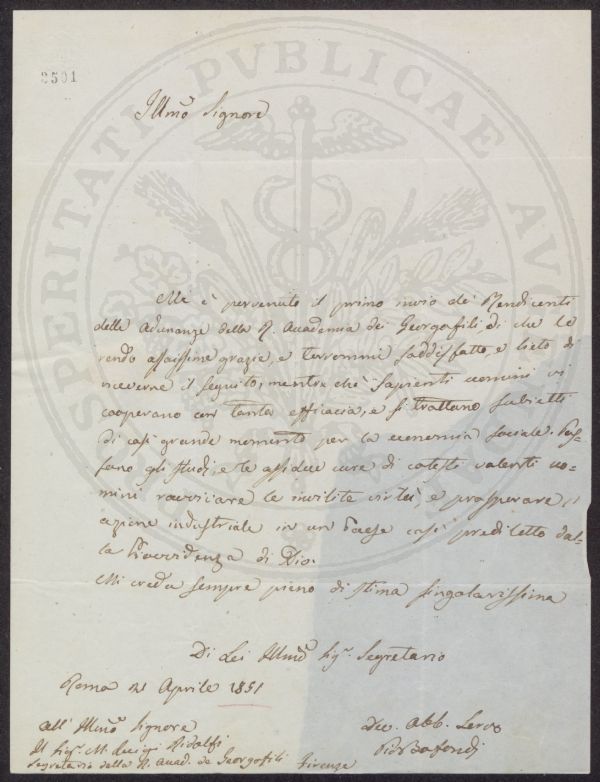 2501
Illmo Signore
PROSPERITATI PUBLICAE AUGENDAE
Mi è pervenuto il primo invio dei Rendiconti
delle Adunanze della R. Accademia dei Georgofili di che le
rendo assaissime grazie, e terrommi soddisfatto, e lieto di
riceverne il seguito, mentre chè sapienti uomini vi
cooperano con tanta efficacia, e si trattano subietti
di così grande momento per la economia sociale. Pos-
sano gli studj, e le assidue cure di cotesti valenti uo-
mini ravvivare le invilite virtù, e prosperare,
azione industriale in un Paese così prediletto dal-
la Provvidenza di Dio.
Mi creda sempre pieno di stima singolarissima
Di Lei Illmo Sigr. Segretario
Roma 21 Aprile 1851
All' Illmo Signore
Il Sigr. M. Luigi Ridolfi
Segretario della R. Accad. de Georgofili Firenze
Dev. Obb. Servo